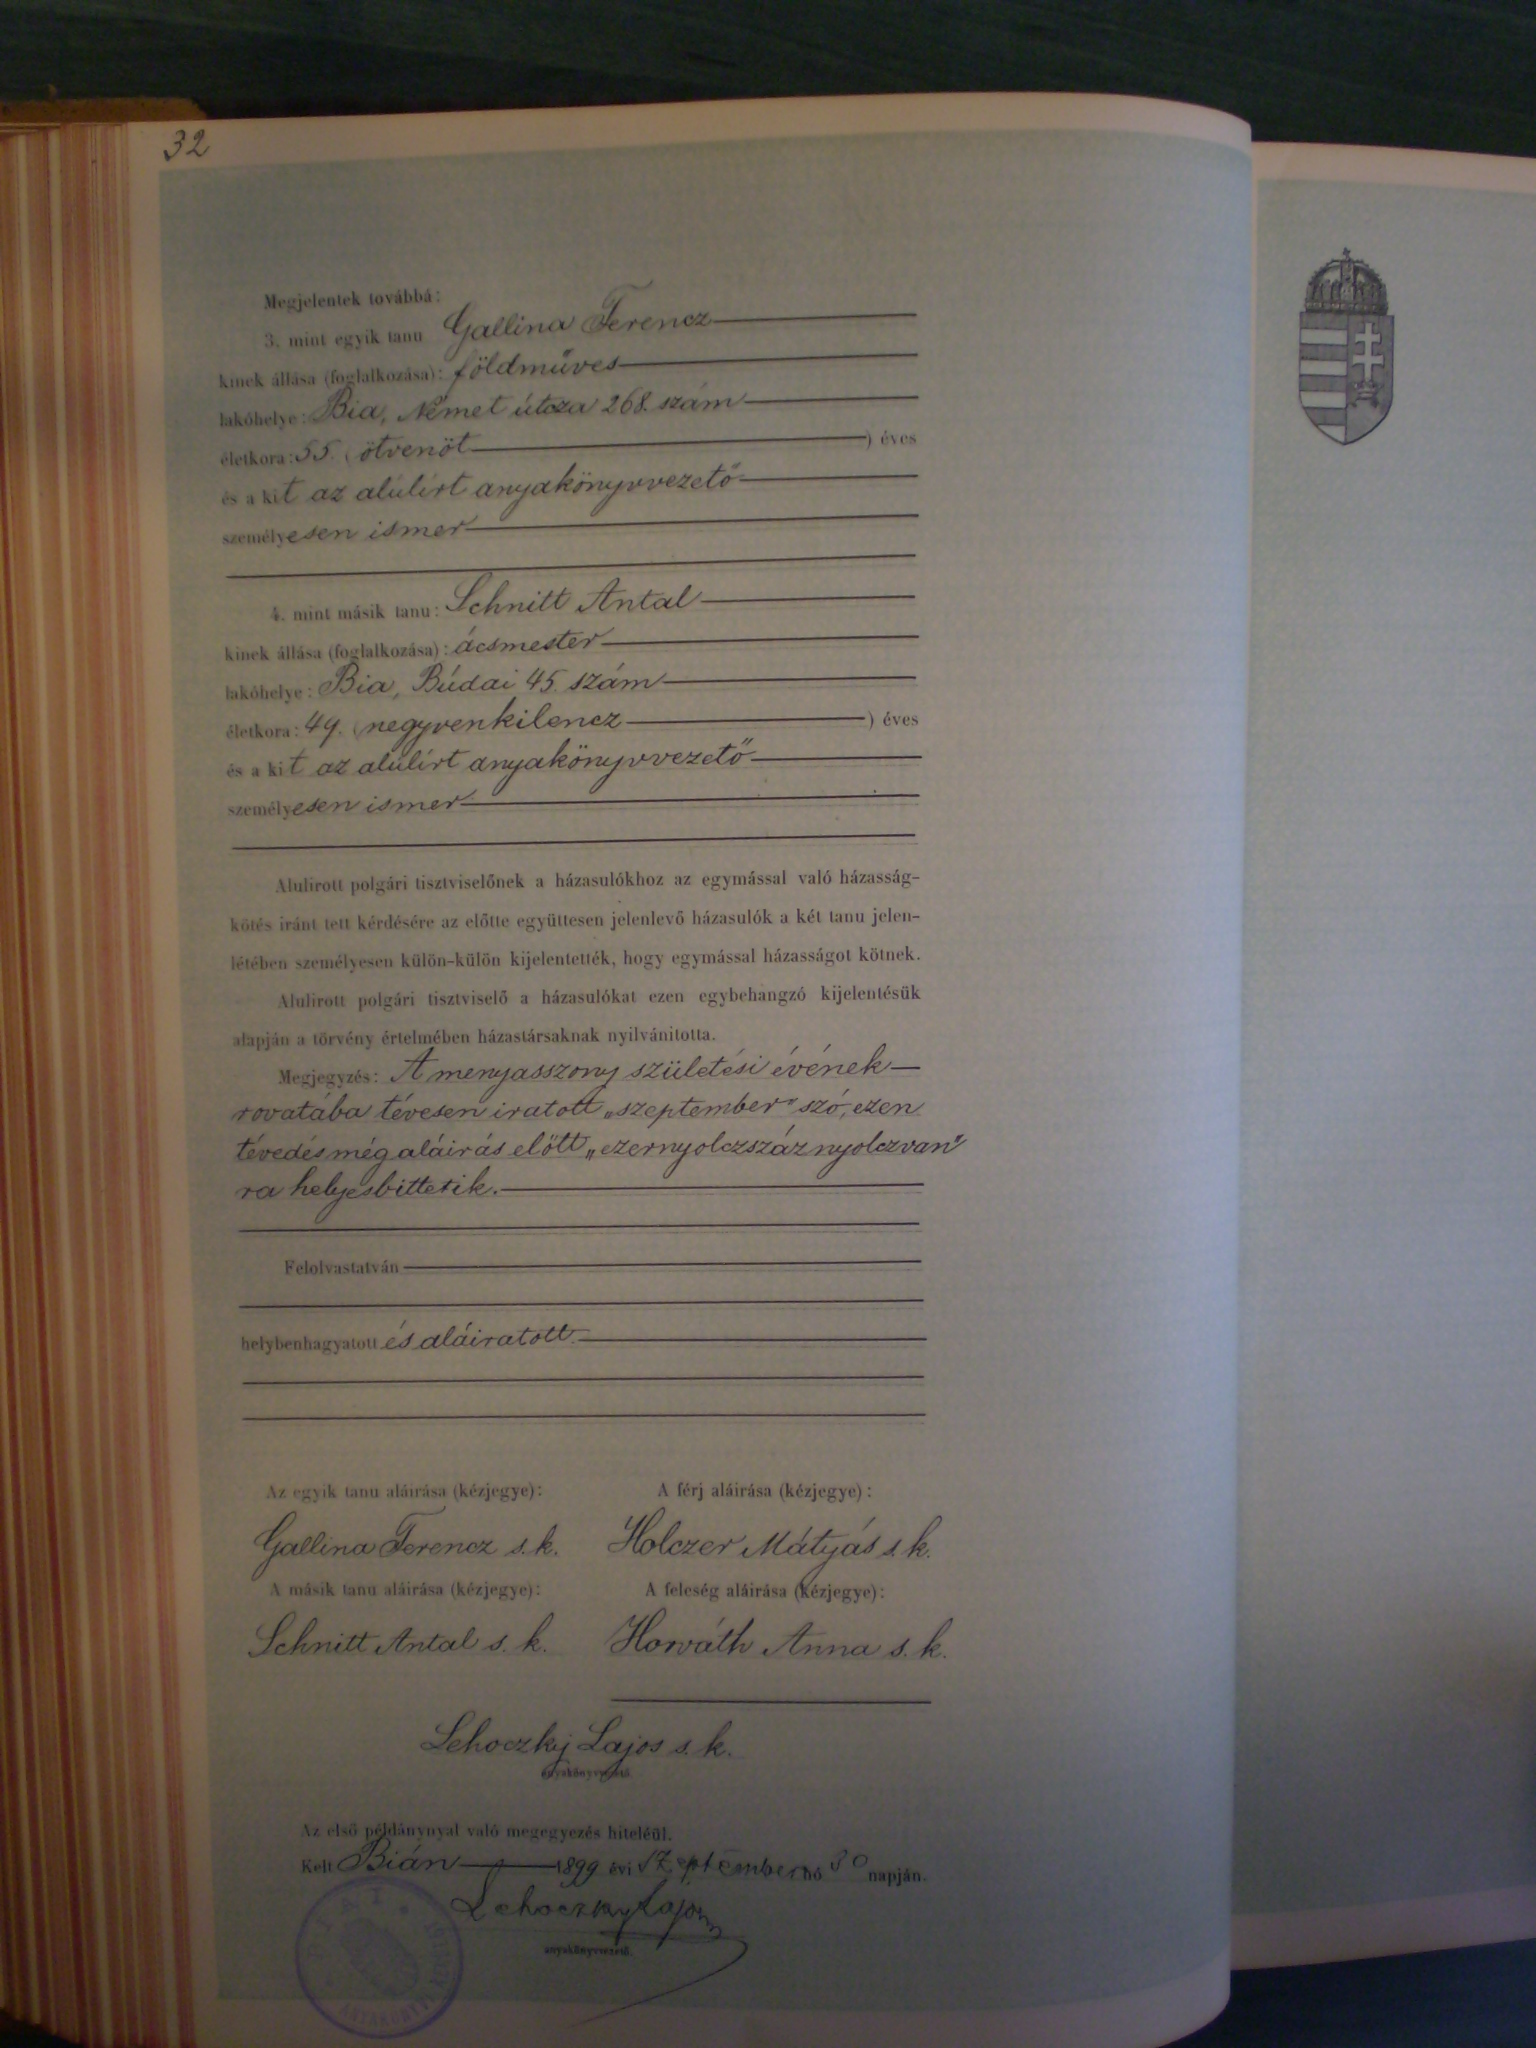 32
Megjelentek továbbá:
3. mint egyik tanu Gallina Ferencz
kinek állása (foglalkozása): földműves
lakóhelye: Bia, Német útcza 268. szám
életkora: 55. (ötvenöt ) éves
és a kit az alúlírt anyakönyvvezető
személyesen ismer
4. mint másik tanu: Schnitt Antal
kinek állása (foglalkozása): ácsmester
lakóhelye: Bia, Búdai 45. szám
életkora: 49. (negyvenkilencz ) éves
és a kit az alúlírt anyakönyvvezető
személyesen ismer
Alulirott polgári tisztviselőnek a házasulókhoz az egymással való házasság-
kötés iránt tett kérdésére az előtte együttesen jelenlevő házasulók a két tanu jelen-
létében személyesen külön-külön kijelentették, hogy egymással házasságot kötnek.
Alulirott polgári tisztviselő a házasulókat ezen egybehangzó kijelentésük
alapján a törvény értelmében házastársaknak nyilvánitotta.
Megjegyzés: A menyasszony születési évének
rovatába tévesen iratott „szeptember" szó, ezen
tévedés még aláirás előtt „ezernyolczszáznyolczvan"
ra helyesbittetik.
Felolvastatván
helybenhagyatott és aláiratott
Az egyik tanu aláirása (kézjegye): A férj aláirása (kézjegye):
Gallina Ferencz s. k. Holczer Mátyás s. k.
A másik tanu aláirása (kézjegye): A feleség aláirása (kézjegye):
Schnitt Antal s. k. Horváth Anna s. k.
Lehoczky Lajos s. k.
anyakönyvvezető
Az első példánynyal való megegyezés hiteléül.
Kelt Bián 1899 évi szeptember hó 30 napján.
Lehoczky Lajos
anyakönyvvezető.
BIAI